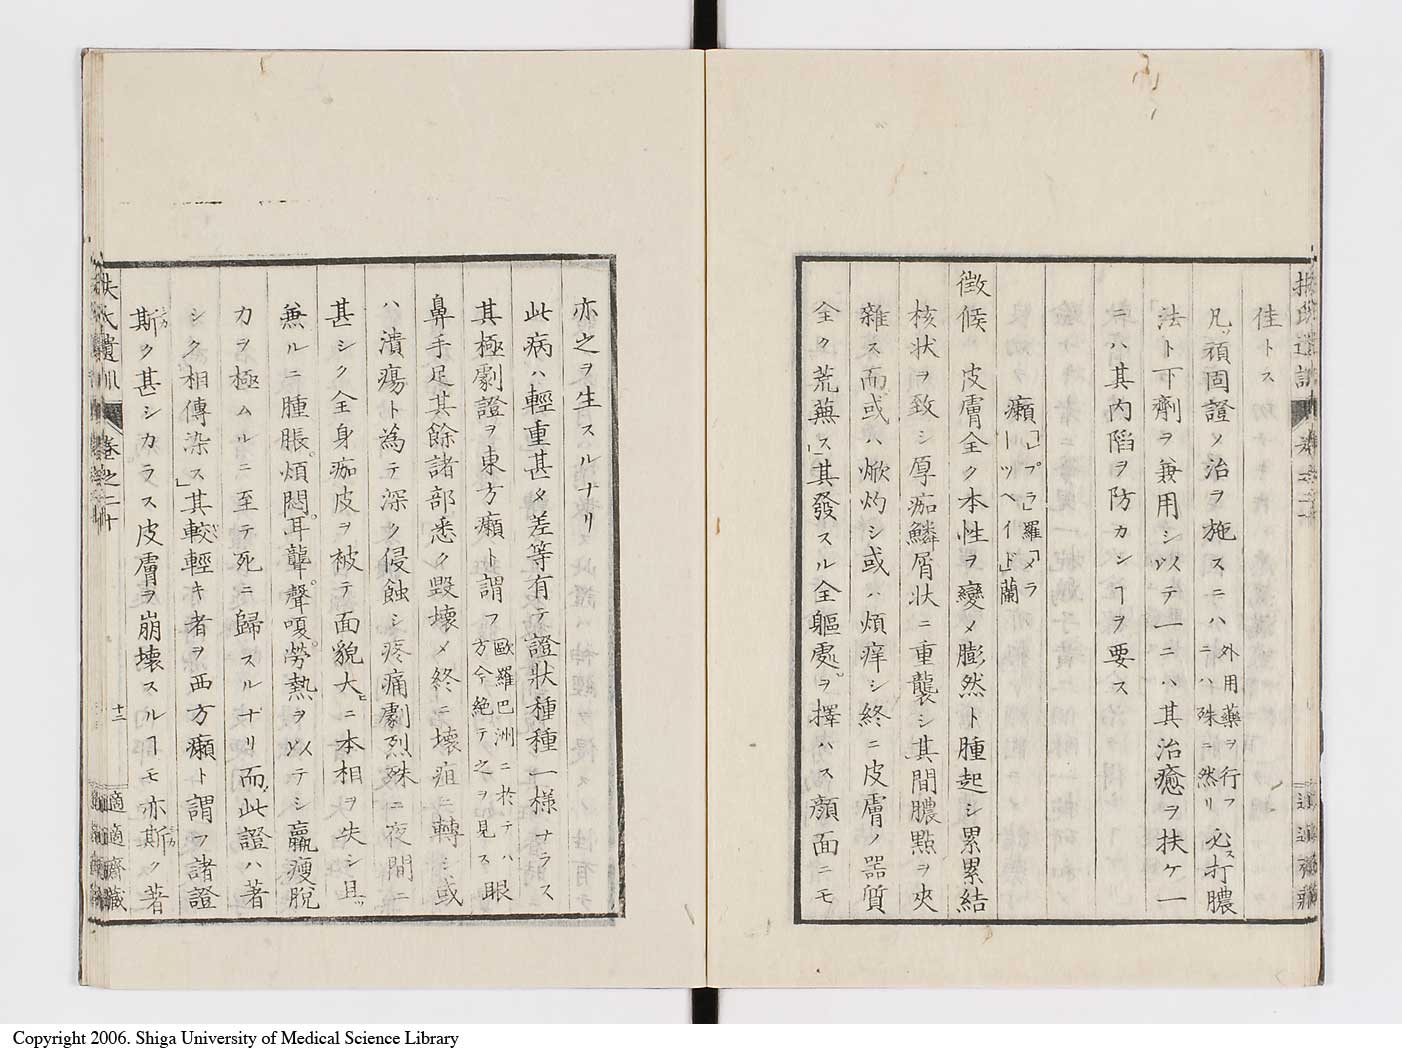 佳トス
凡ソ頑固證ノ治ヲ施スニハ外用藥ヲ行フニハ殊ニ然リ必ス打膿
法ト下劑ヲ兼用シ以テ一ニハ其治癒ヲ扶ケ一
ニハ其内陷ヲ防カンヿヲ要ス
癩「レプラ」羅「メラートツヘイド」蘭
徴候 皮膚全ク本性ヲ變メ膨然ト腫起シ累累結
核状ヲ致シ厚痂鱗屑状ニ重襲シ其間膿點ヲ夾
雜ス而或ハ焮灼シ或ハ煩痒シ終ニ皮膚ノ器質
全ク荒蕪ス」其發スル全軀處ヲ擇ハス顔面ニモ
亦之ヲ生スルナリ
此病ハ輕重甚タ差等有テ證狀種種一樣ナラス
其極劇證ヲ東方癩ト謂フ歐羅巴洲ニ於テハ方今絶テ之ヲ見ス眼
鼻手足其餘諸部悉ク毀壞メ終ニ壞疽ニ轉シ或
ハ潰瘍ト為テ深ク侵蝕シ疼痛劇烈殊ニ夜間ニ
甚シク全身痂皮ヲ被テ面貌大ニ本相ヲ失シ且
兼ルニ腫脹煩悶耳聾聲嗄勞熱ヲ以テシ羸瘦脫
力ヲ極ムルニ至テ死ニ歸スルナリ而此證ハ著
シク相傳染ス」其較輕キ者ヲ西方癩ト謂フ諸證
斯ク甚シカラス皮膚ヲ崩壞スルヿモ亦斯ク著
扶氏遺訓 卷之二十 十二 適適齋藏